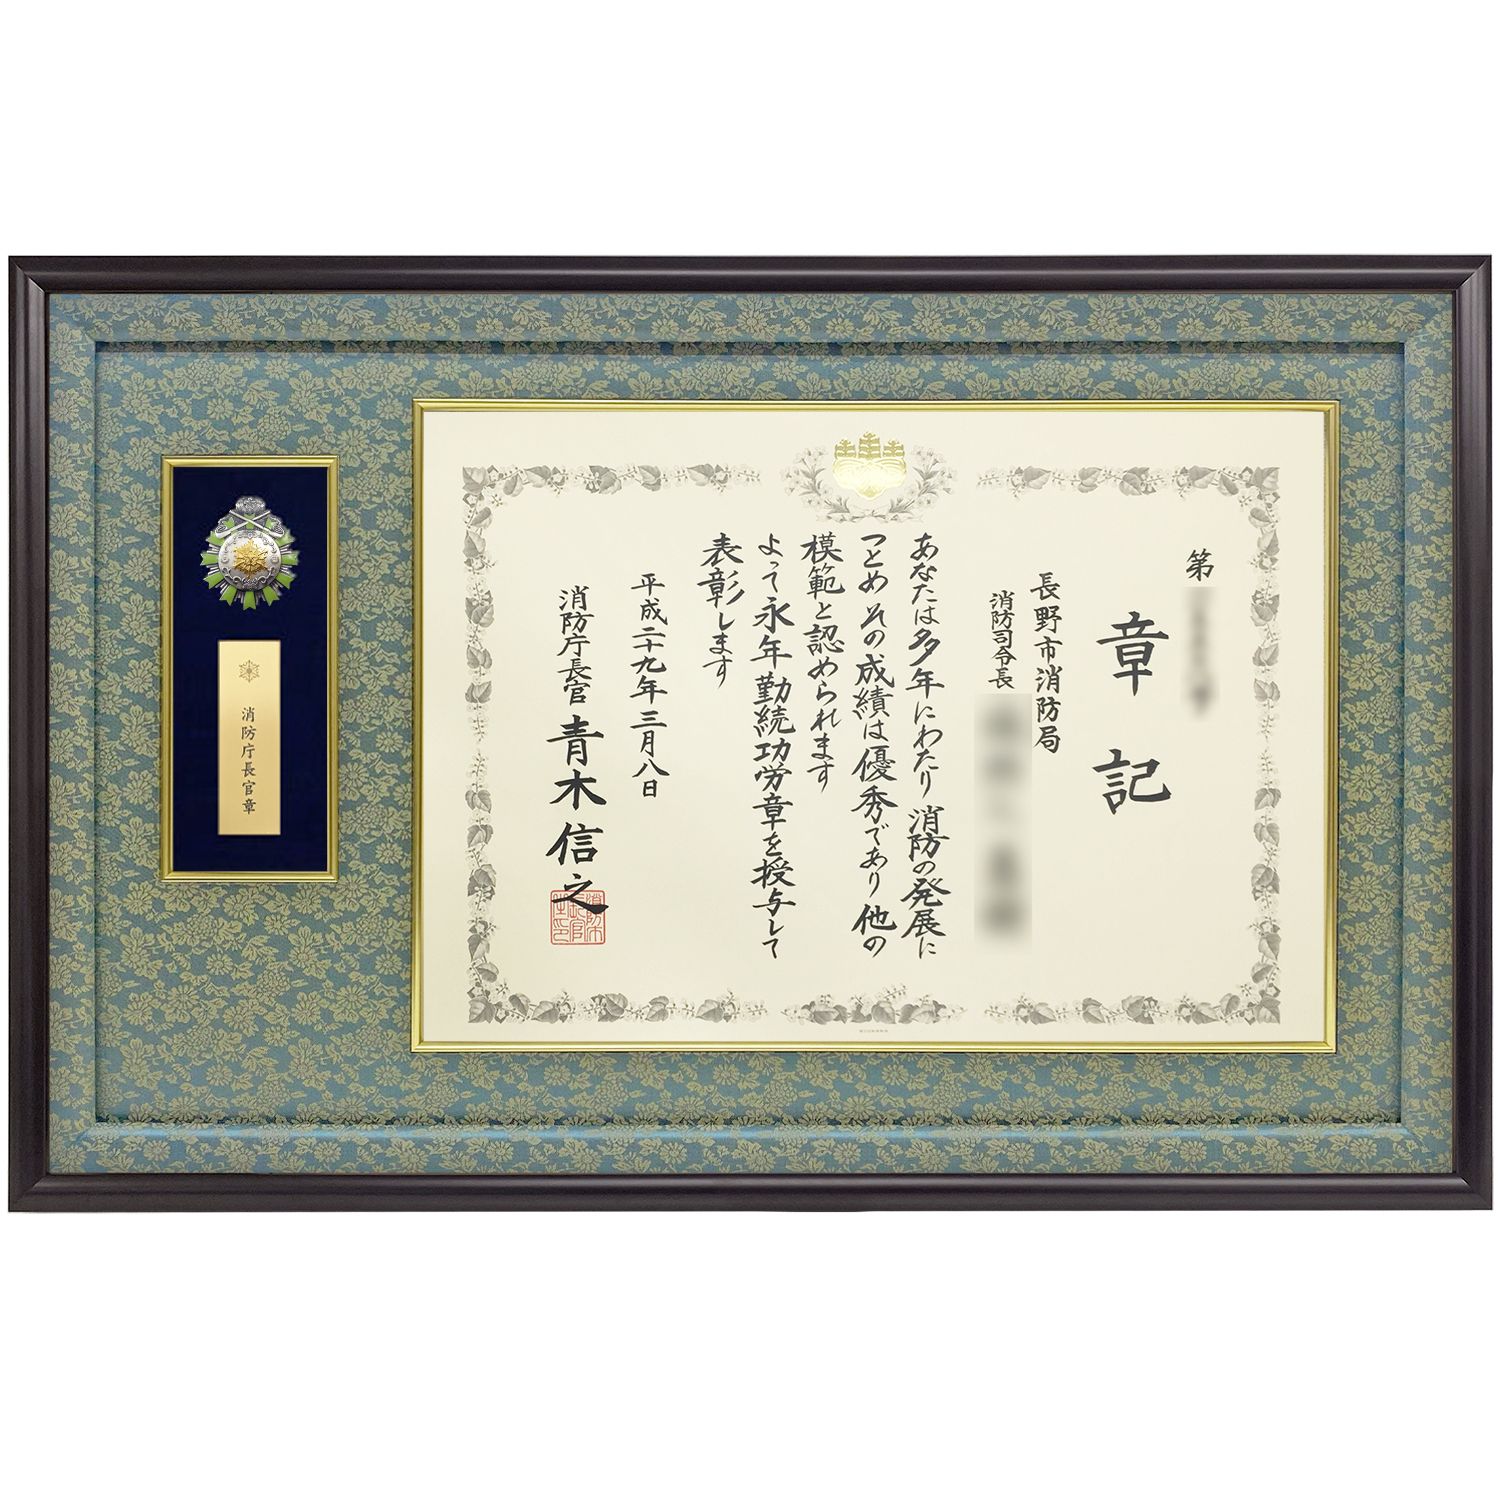 第
章記
長野市消防局
消防司令長
あなたは多年にわたり消防の発展に
つとめその成績は優秀であり他の
模範と認められます
よって永年勤続功労章を授与して
表彰します
平成二十九年三月八日
消防庁長官 青木信之
消防庁長官章